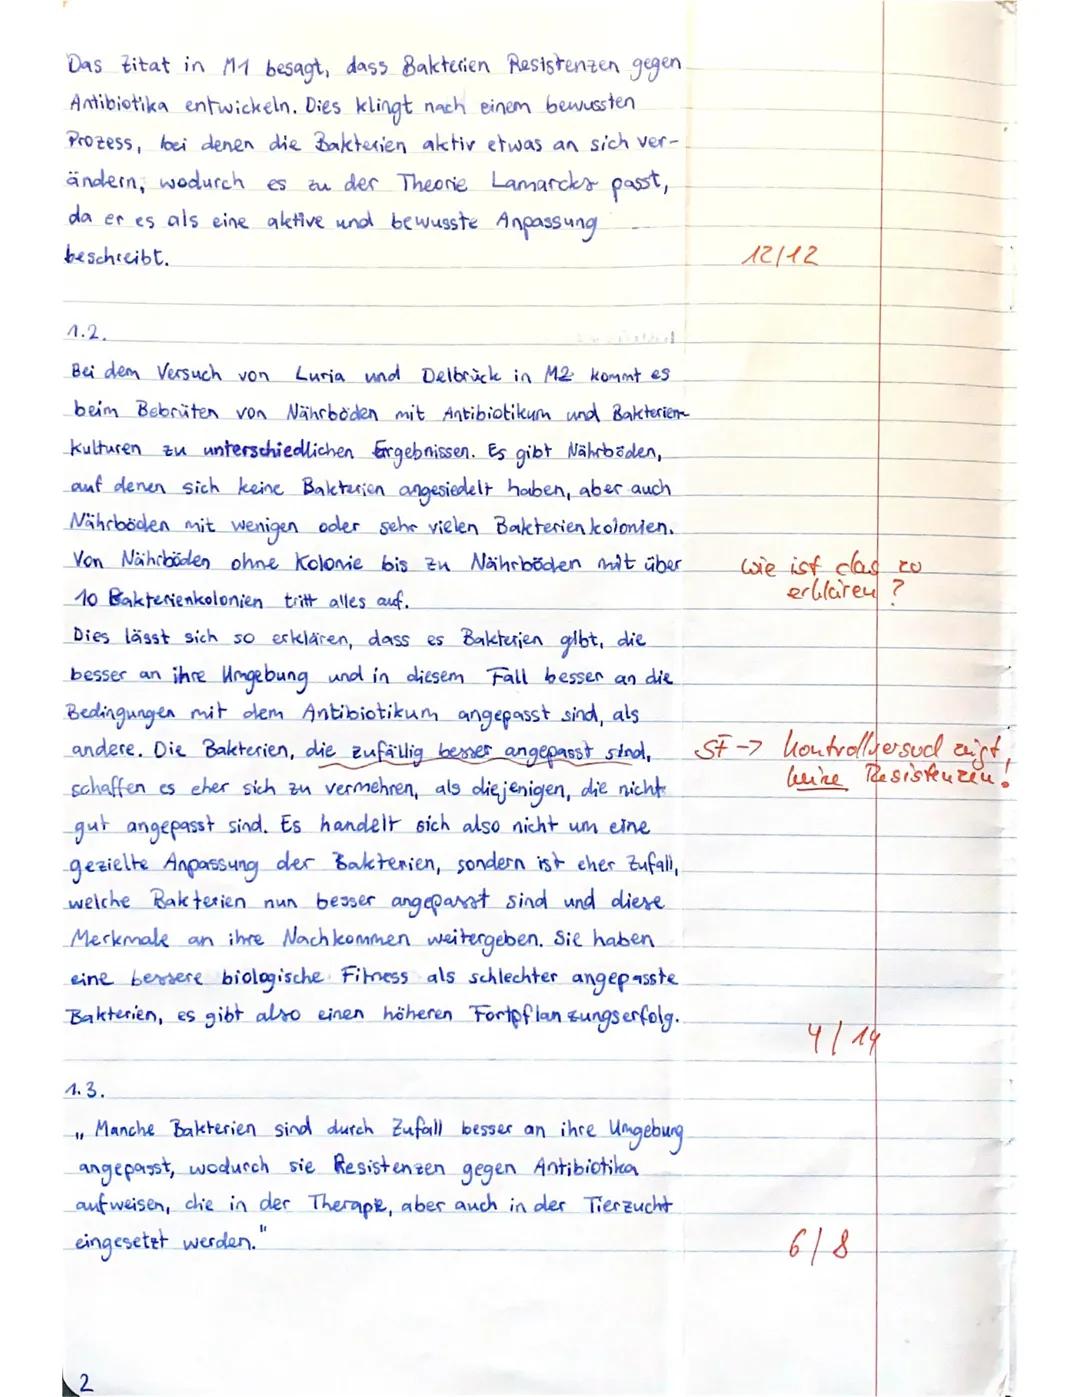 Das Zitat in M1 besagt, dass Bakterien Resistenzen gegen
Antibiotika entwickeln. Dies klingt nach einem bewussten
Prozess, bei denen die Bakterien aktiv etwas an sich ver-
ändern, wodurch es zu der Theorie Lamarcks passt,
da er es als eine aktive und bewusste Anpassung
beschreibt.
12/12
1.2.
Bei dem Versuch von Luria und Delbrück in M2 kommt es
beim Bebrüten von Nährböden mit Antibiotikum und Bakterien-
kulturen zu unterschiedlichen Ergebnissen. Es gibt Nährböden,
auf denen sich keine Bakterien angesiedelt haben, aber auch
Nährböden mit wenigen oder sehr vielen Bakterienkolonien.
Von Nährböden ohne Kolonie bis zu Nährböden mit über
10 Bakterienkolonien tritt alles auf.
wie ist das zu
erklären?
Dies lässt sich so erklären, dass es Bakterien gibt, die
besser an ihre Umgebung und in diesem Fall besser an die
Bedingungen mit dem Antibiotikum angepasst sind, als
andere. Die Bakterien, die zufällig besser angepasst sind,
schaffen es eher sich zu vermehren, als diejenigen, die nicht
gut angepasst sind. Es handelt sich also nicht um eine
gezielte Anpassung der Bakterien, sondern ist eher Zufall,
welche Bakterien nun besser angepasst sind und diese
Merkmale an ihre Nachkommen weitergeben. Sie haben
eine bessere biologische Fitness als schlechter angepasste
Bakterien, es gibt also einen höheren Fortpflanzungserfolg.
Sf -> Kontrollversuch zeigt,
keine Resistenzen!
4/14
1.3.
„Manche Bakterien sind durch Zufall besser an ihre Umgebung
angepasst, wodurch sie Resistenzen gegen Antibiotika
aufweisen, die in der Therapie, aber auch in der Tierzucht
eingesetzt werden."
6/8
2